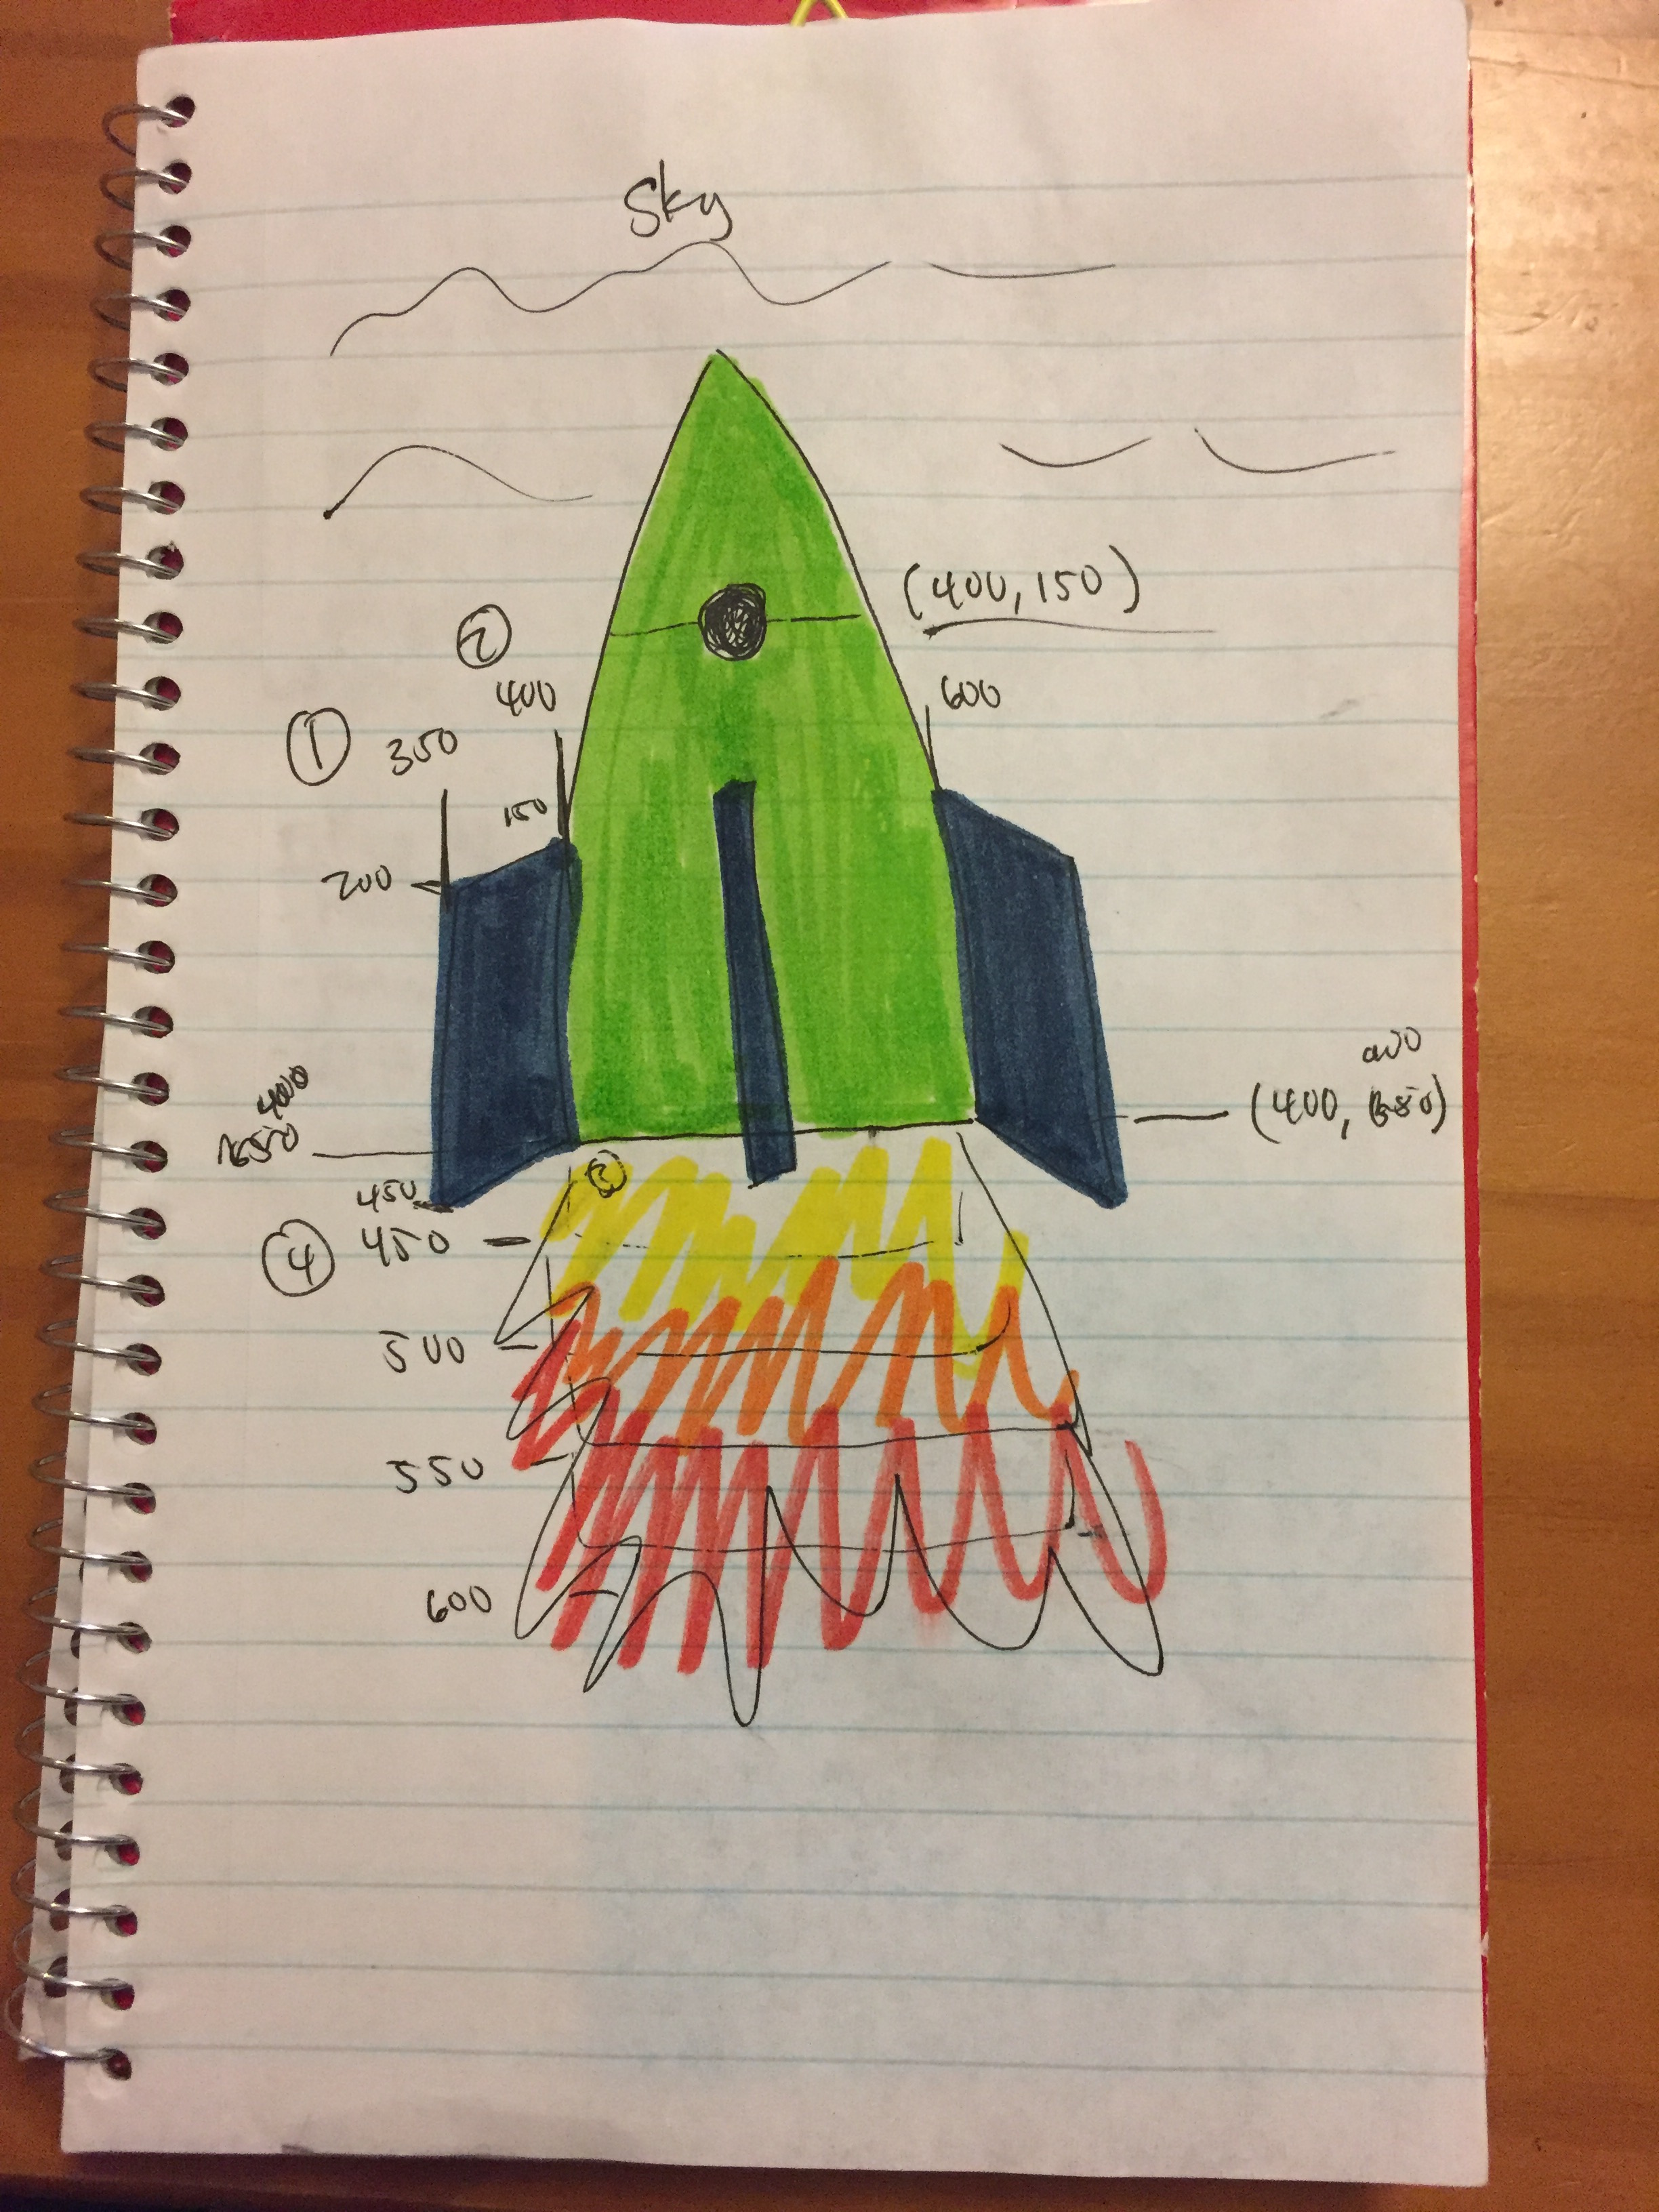 Sky
(400, 150)
2
400
600
1
350
150
200
400
(400,
450
3
4
450
500
550
600